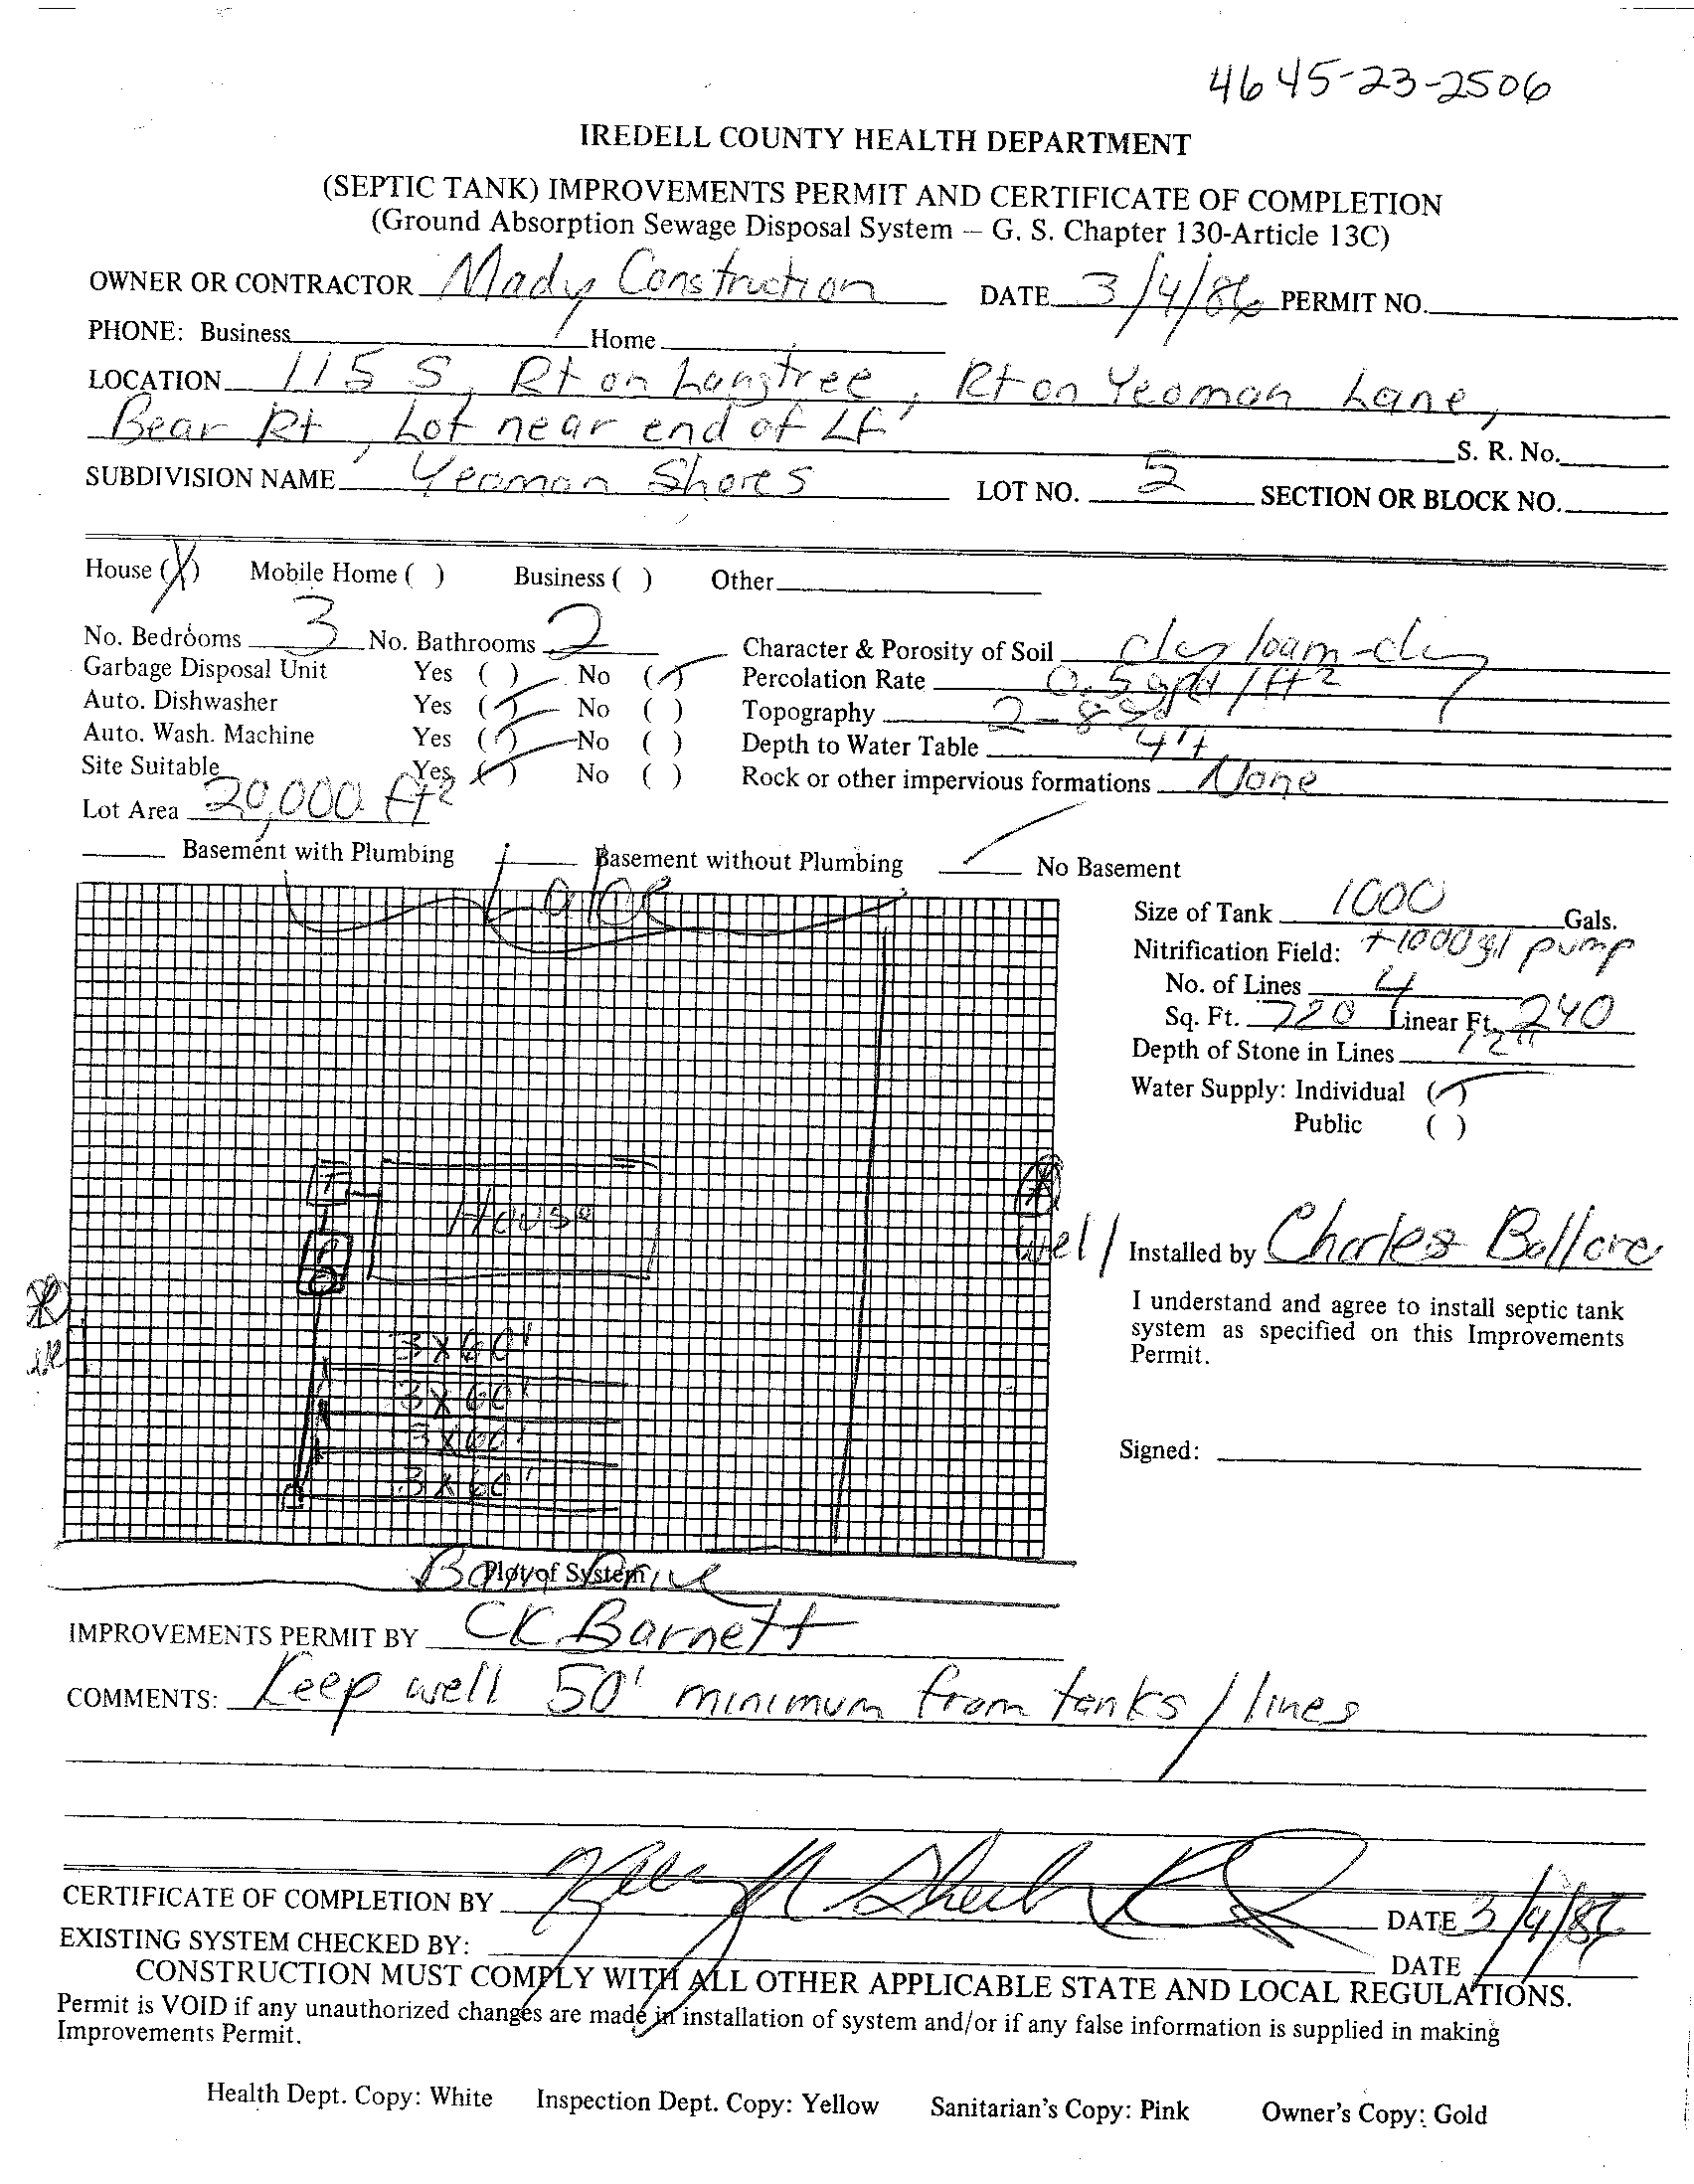 4645-23-2506
IREDELL COUNTY HEALTH DEPARTMENT
(SEPTIC TANK) IMPROVEMENTS PERMIT AND CERTIFICATE OF COMPLETION
(Ground Absorption Sewage Disposal System – G. S. Chapter 130-Article 13C)
OWNER OR CONTRACTOR Mady Construction DATE 3/4/86 PERMIT NO.
PHONE: Business Home
LOCATION 115 S, Rt on Langtree, Rt on Yeoman Lane,
Bear Rt, Lot near end of Lf
S. R. No.
SUBDIVISION NAME Yeoman Shores LOT NO. 5 SECTION OR BLOCK NO.
House (X) Mobile Home ( ) Business ( ) Other
No. Bedrooms 3 No. Bathrooms 2 Character & Porosity of Soil clay loam-clay
Garbage Disposal Unit Yes ( ) No (✓) Percolation Rate 0.5 gpd/ft2
Auto. Dishwasher Yes (✓) No ( ) Topography 2-8%
Auto. Wash. Machine Yes (✓) No ( ) Depth to Water Table 4'+
Site Suitable Yes (✓) No ( ) Rock or other impervious formations None
Lot Area 20,000 ft2
Basement with Plumbing Basement without Plumbing ✓ No Basement
Lake
Size of Tank 1000 Gals.
Nitrification Field: +1000 gl pump
No. of Lines 4
Sq. Ft. 720 Linear Ft. 240
Depth of Stone in Lines 12"
Water Supply: Individual (✓)
Public ( )
T
House
P
Well
Installed by Charles Ballare
I understand and agree to install septic tank
system as specified on this Improvements
Permit.
3x60'
3x60'
3x60'
3x60'
Signed:
Plot of System
Drive
IMPROVEMENTS PERMIT BY CK Barnett
COMMENTS: Keep well 50' minimum from tanks/lines
CERTIFICATE OF COMPLETION BY DATE 3/4/86
EXISTING SYSTEM CHECKED BY: DATE
CONSTRUCTION MUST COMPLY WITH ALL OTHER APPLICABLE STATE AND LOCAL REGULATIONS.
Permit is VOID if any unauthorized changes are made in installation of system and/or if any false information is supplied in making
Improvements Permit.
Health Dept. Copy: White Inspection Dept. Copy: Yellow Sanitarian's Copy: Pink Owner's Copy: Gold